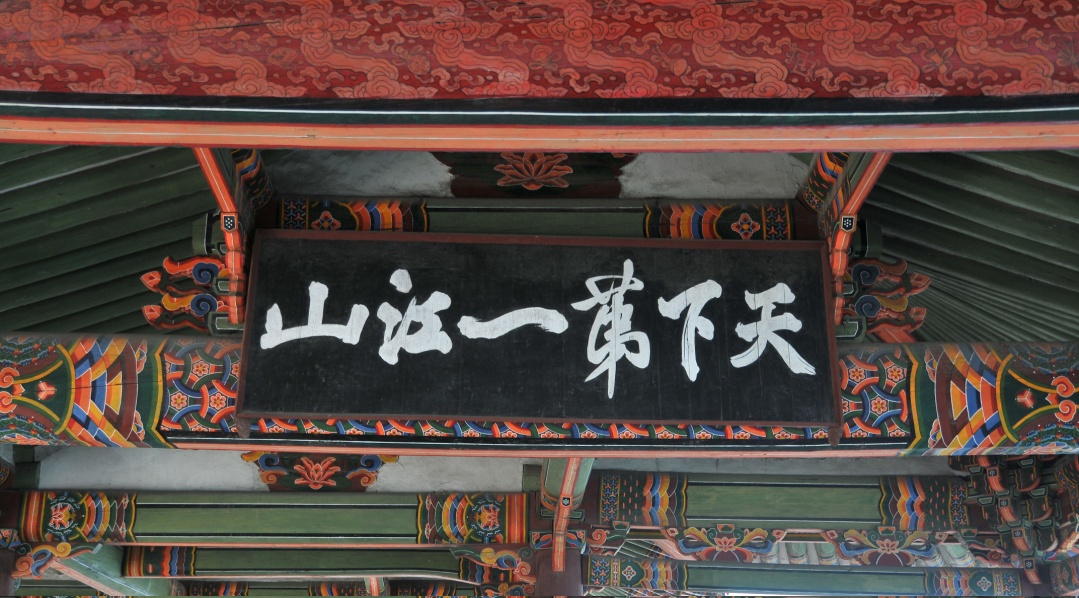 天下第一江山